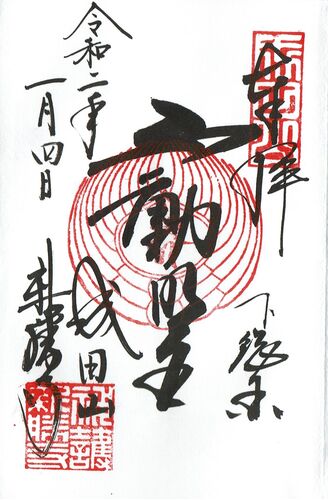 奉拝
下総国
不動明王
成田山
新勝寺
令和二年
一月四日